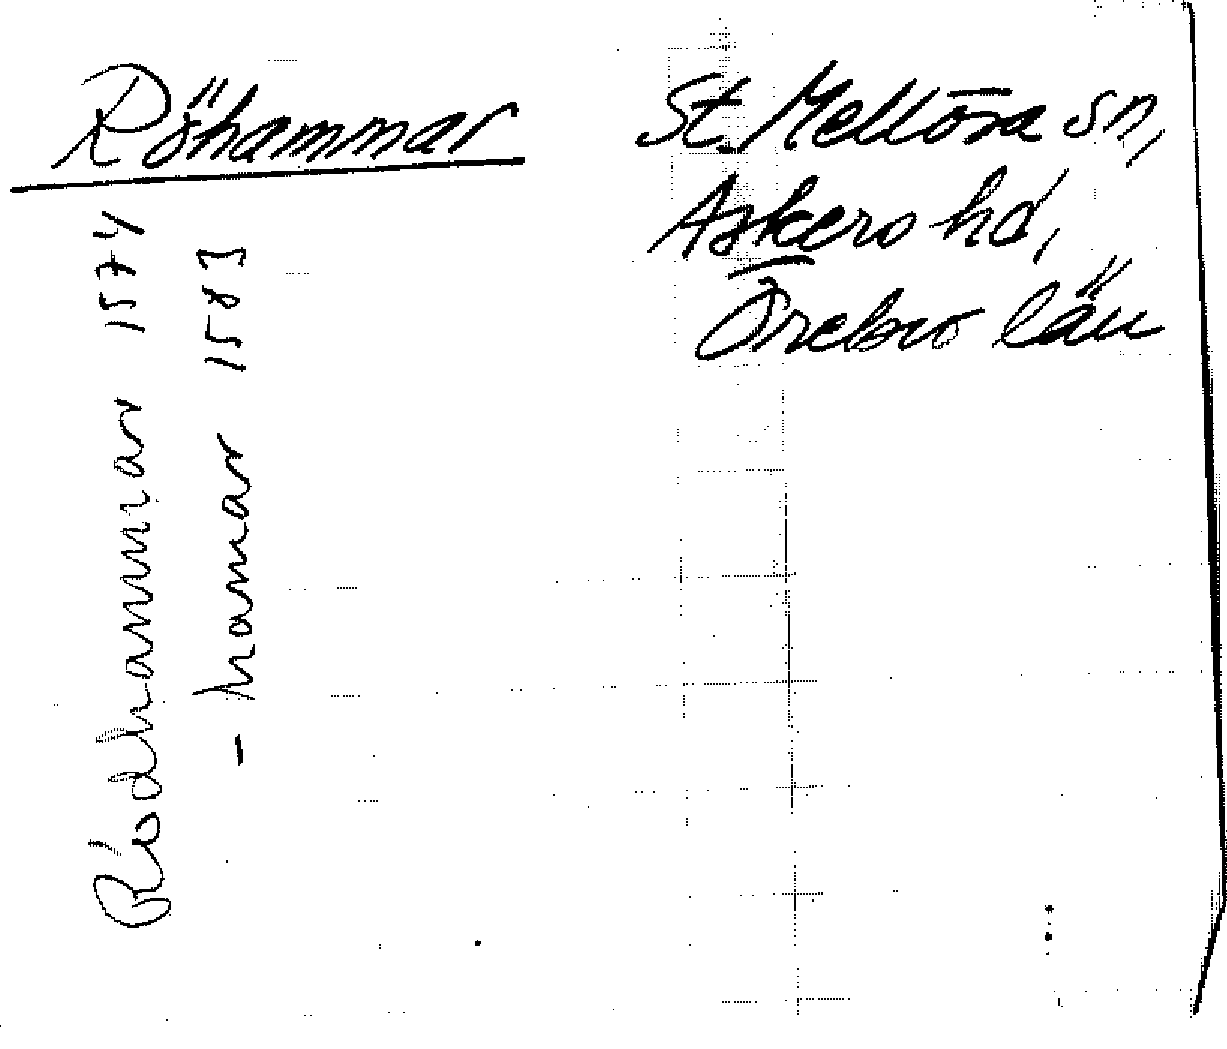 Röhammar
St. Mellösa sn,
Askers hd,
Örebro län
Rödhammar 1574
- hamar 1583